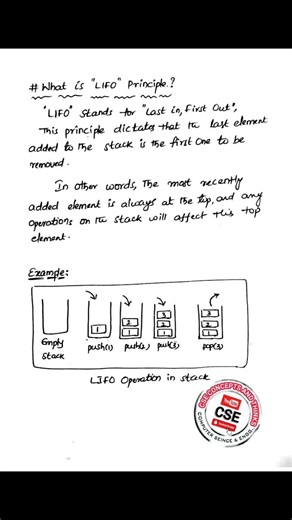 # What is "LIFO" Principle.?
"LIFO" Stands for "Last in, First Out",
This principle dictates that the last element
added to the stack is the first one to be
removed.
In other words, The most recently
added element is always at the top, and any
operations on the stack will affect this top
element.
Example:
1
2
1
3
2
1
3
2
1
Empty
Stack
push(1)
push(2)
push(3)
pop(3)
LIFO Operation in stack
CSE CONCEPTS AND THINKS
YouTube
CSE
COMPUTER SEINCE & ENGG.